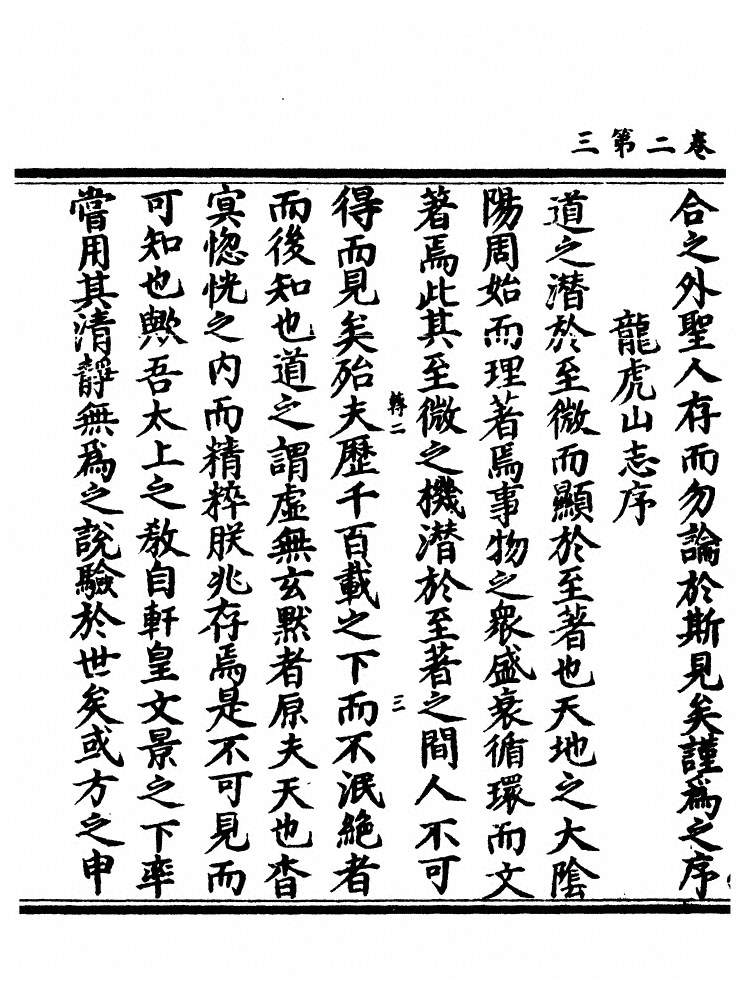 卷二第三
合之外聖人存而勿論於斯見矣謹爲之序
龍虎山志序
道之潛於至微而顯於至著也天地之大陰
陽周始而理著焉事物之衆盛衰循環而文
著焉此其至微之機潛於至著之間人不可
轉二
三
得而見矣殆夫歷千百載之下而不泯絶者
而後知也道之謂虛無玄默者原夫天也杳
㝠惚恍之内而精粹朕兆存焉是不可見而
可知也歟吾太上之敎自軒皇文景之下率
嘗用其清靜無爲之說驗於世矣或方之申